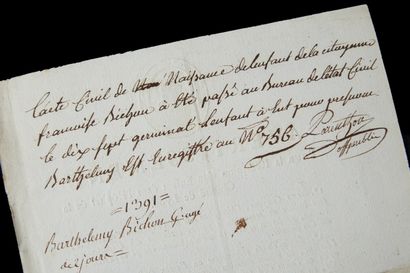 L'acte Civil de Naissance de l'enfant de la citoyenne
francoise Bichon a été passé au Bureau de l'état Civil
le dix sept germinal l'enfant à eut pour prenom
Barthelemy Est Enregistré au N.º 756.
officier public
= 1391 =
Barthelemy Bichon Gagé
de 2 jours =